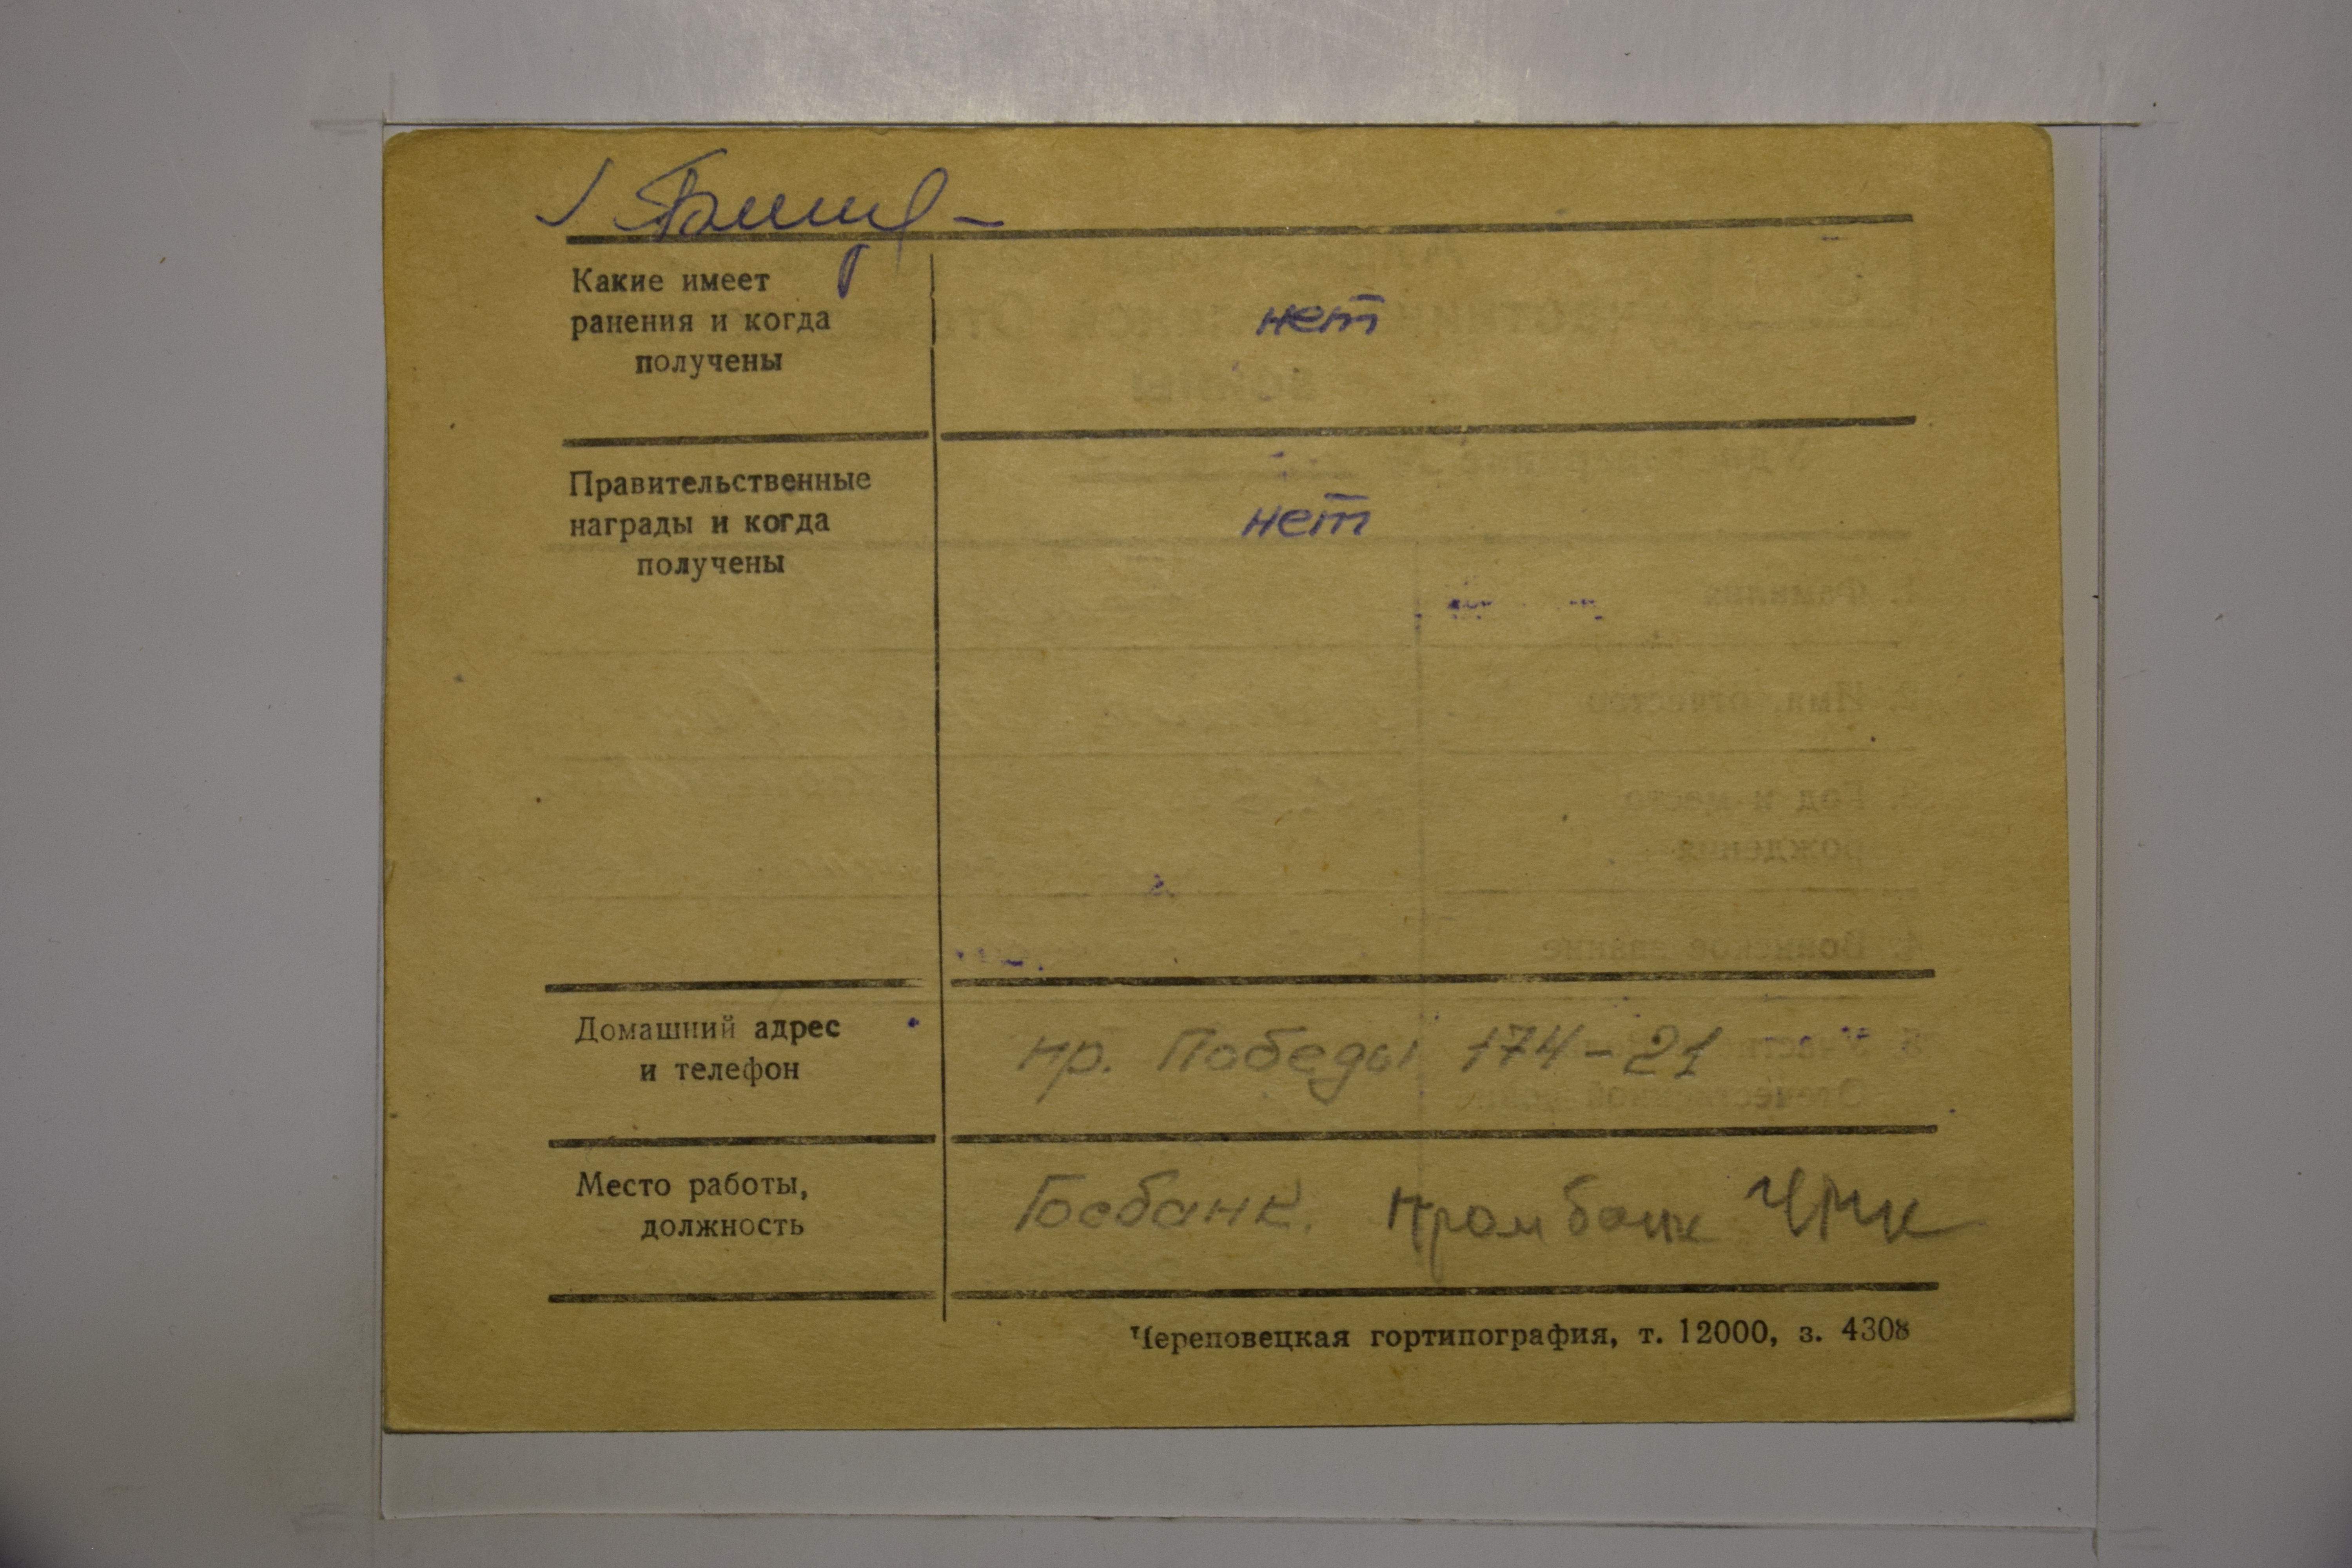 Какие имеет
ранения и когда
получены
нет
Правительственные
награды и когда
получены
нет
Домашний адрес
и телефон
пр. Победы 174-21
Место работы,
должность
Госбанк. Промбанк ЧМК
Череповецкая гортипография, т. 12000, з. 4308